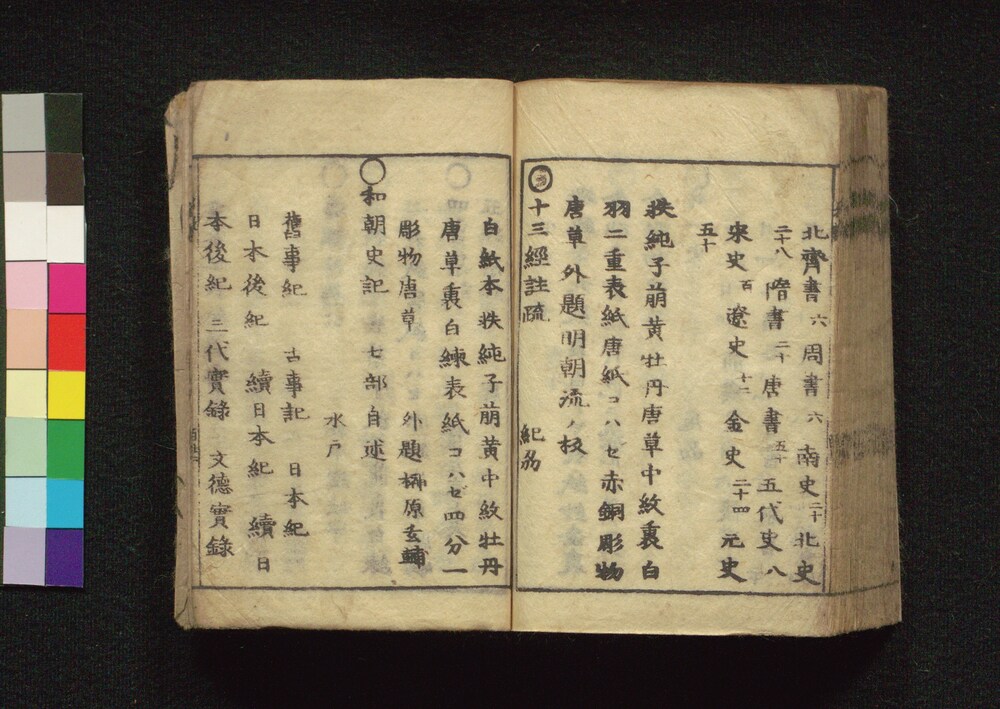 北齊書 六 周書 六 南史 二十 北史
二十八 隋書 二十 唐書 五十 五代史 八
宋史 百 遼史 十二 金史 二十四 元史
五十
袟純子萠黄牡丹唐草中紋裏白
羽二重表紙唐紙コハセ赤銅彫物
唐草外題明朝流ノ板
◯十三經註疏 紀刕
白紙本袟純子萠黄中紋牡丹
唐草裏白練表紙コハゼ四分一
彫物唐草 外題榊原玄輔
◯和朝史記 七部自述
水戸
舊事紀 古事記 日本紀
日本後紀 續日本紀 續日
本後紀 三代實錄 文德實錄